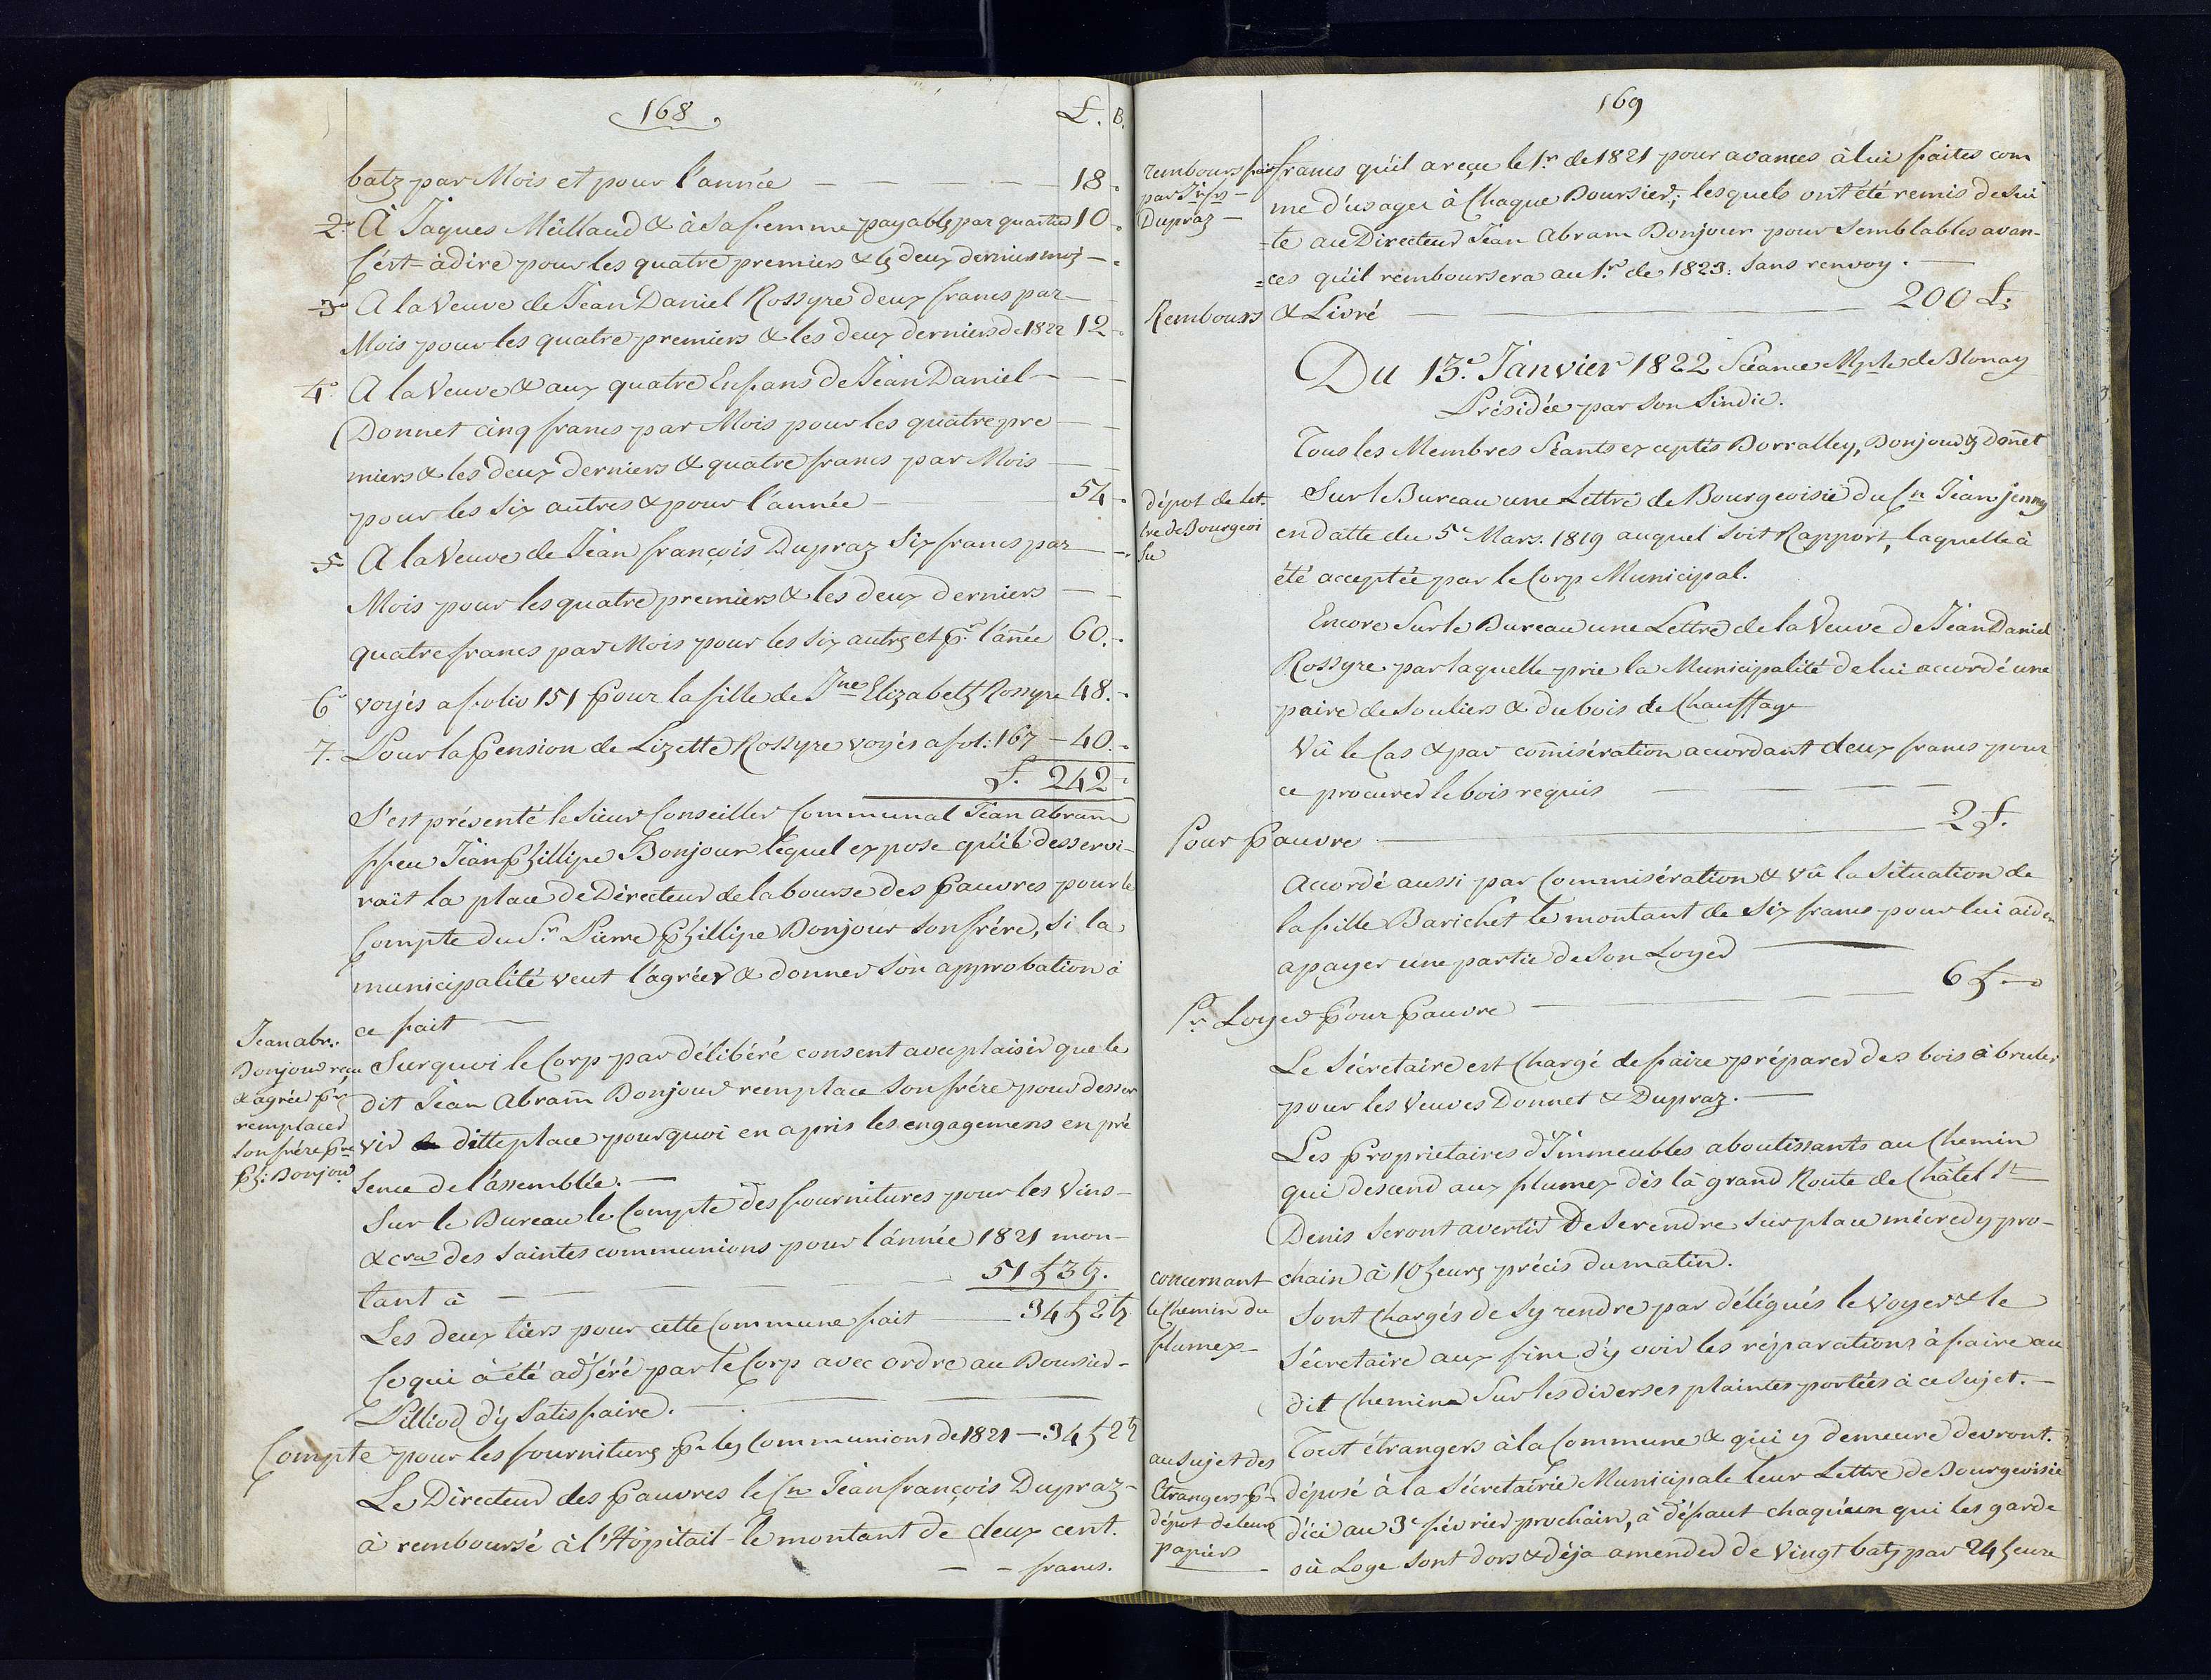 168
£. B.
batz par Mois et pour l'année — — — — 18-
2° À Jaques Müllaud & à Sa femme payable par quartier 10-
C'est-à dire pour les quatre premiers & les deux derniers mois —
3° A la Veuve de Jean Daniel Rossyre deux francs par —
Mois pour les quatre premiers & les deux derniers de 1822 12-
4° A la Veuve & aux quatre Enfans de Jean Daniel —
Donnet cinq francs par Mois pour les quatre pre —
miers & les deux derniers & quatre francs par Mois —
pour les Six autres & pour l'année — 54-
5° A la Veuve de Jean françois Dupraz Six francs par —
Mois pour les quatre premiers & les deux derniers —
quatre francs par Mois pour les six autres et pr l'année 60.-
6° voyés a folio 151 pour la fille de Jne Elizabeth Rossyre 48.-
7. Pour la pension de Lizette Rossyre voyés a fol: 167 — 40.-
£. 242-
S'est présenté le Sieur Conseiller Communal Jean abram
ffeu Jean Phillipe Bonjour lequel expose qu'il desservi-
rait la place de Directeur de la bourse des pauvres pour le
Compte du Sr. Pierre Phillipe Bonjour son frére, Si la
municipalité veut l'agréer & donner Son approbation à
ce fait —
Jean abr.
Bonjour reçu
& agréé pr
remplacer
son frère Pre
Ph: Bonjour
Surquoi le Corp par délibéré consent avec plaisir que le
dit Jean Abram Bonjour remplace Son frére pour desser
vir ditte place pourquoi en a pris les engagemens en pré
sence de l'assemblée. —
Sur le Bureau le Compte des fournitures pour les Vins —
& cra des Saintes communions pour l'année 1821 mon-
tant à — — 51 £ 3 b.
Les deux tiers pour cette Commune fait — 34 £ 2 b
Ce qui à été adhéré par le Corp avec ordre au Boursier —
Pilliod d'y Satisfaire. —
Compte pour les fournitures pr les Communions de 1821 — 34 £ 2 b
Le Directeur des pauvres le Cn Jean françois Dupraz —
à remboursé à l'Hôpitail le montant de deux cent.
— — francs.
169
rembours fait
par Jn frs —
Dupraz —
francs qu'il a reçu le 1r de 1821 pour avances à lui faites com
me d'usage à Chaque Boursier; lesquels ont été remis de Sui
-te au Directeur Jean Abram Bonjour pour Semblables avan-
=ces qu'il remboursera au 1r de 1823: Sans renvoy. —
Rembours & Livré — 200 £.
Du 13e Janvier 1822 Séance Mple de Blonay
Présidée par Son Sindic.
Tous les Membres Séants exceptés Borralley, Bonjour & Donnet
dépot de let-
tre de Bourgeoi
sie
Sur le Bureau une Lettre de Bourgeoisie du Cn Jean jenny
en datte du 5e Mars. 1819 auquel Soit Rapport, laquelle à
été acceptée par le Corp Municipal.
Encore Sur le Bureau une Lettre de la Veuve de Jean Daniel
Rossyre par laquelle prie la Municipalité de lui accordé une
paire de Souliers & du bois de Chauffage
Vû le Cas & par commisération accordant deux francs pour
ce procurer le bois requis — —
Pour pauvre — 2 £.
Accordé aussi par Commisération & vû la Situation de
la fille Barichet le montant de Six francs pour lui aider
a payer une partie de Son Loyer —
Pr Loyer pour pauvre — 6 £ —
Le Sécretaire est Chargé de faire préparer des bois à bruler
pour les Veuves Donnet & Dupraz. —
Les Proprietaires d'Immeubles aboutissants au Chemin
qui descend aux plumex dès là grand Route de Châtel St
Denis Seront avertis De Se rendre Sur place mécredy pro-
chain à 10 heures précis du matin.
concernant
le Chemin du
plumex —
Sont Chargés de Sy rendre par délégués le Voyer & le
Sécretaire aux fins d'y voir les réparations à faire au
dit Chemin Sur les diverses plaintes portées à ce Sujet. —
au Sujet des
Etrangers pr
dépot de leurs
papiers
Tout étrangers à la Commune & qui y demeure devront.
déposé à la Sécretairie Municipale leur Lettre de Bourgeoisie
d'ici au 3e février prochain, à défaut chaqu'un qui les garde
où Loge Sont dors & déja amender de Vingt batz par 24 heure